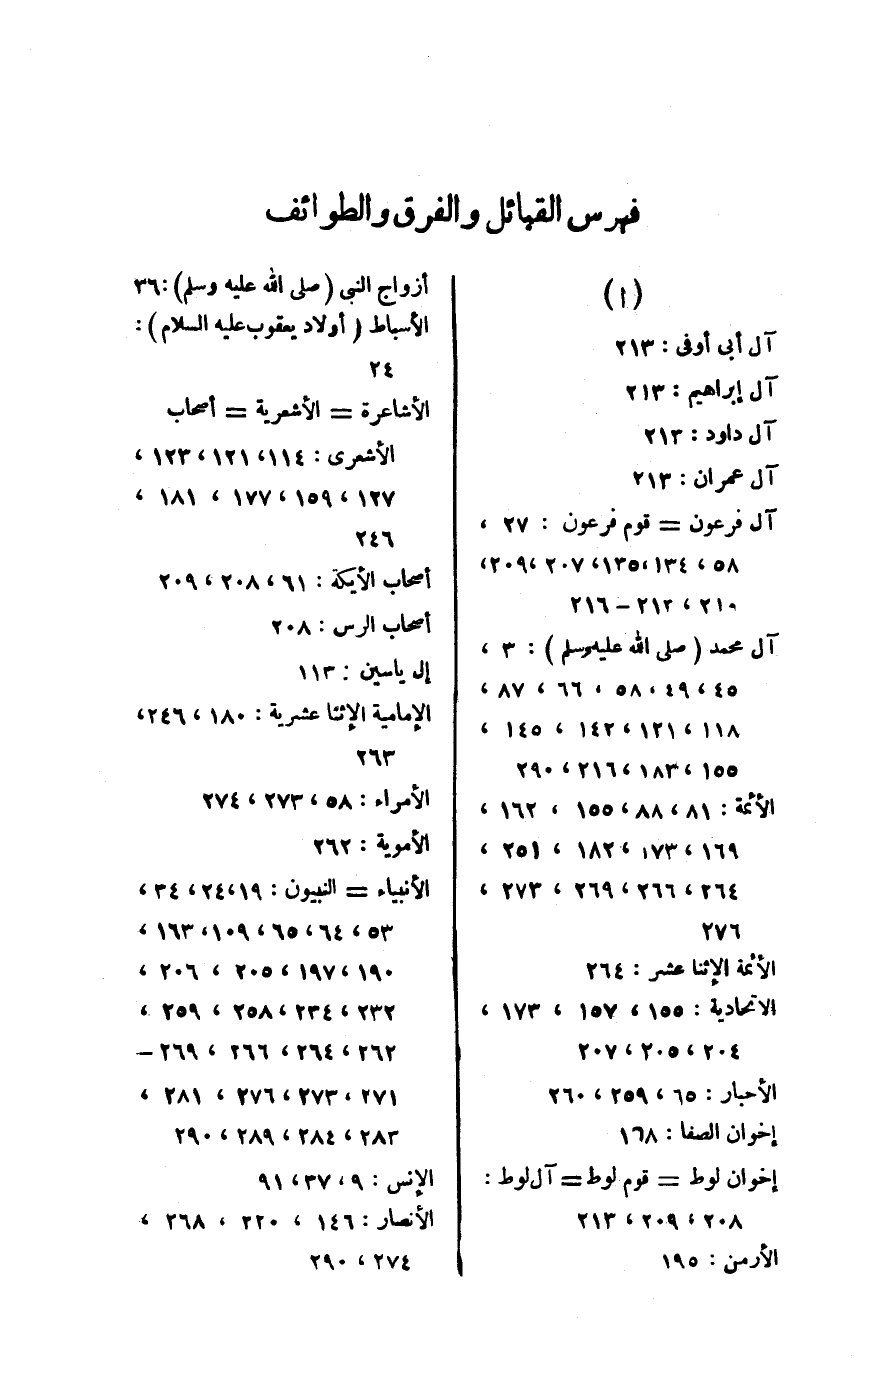 فهرس القبائل والفرق والطوائف
(ا)
آل أبى أوفى : ٢١٣
آل إبراهيم : ٢١٣
آل داود : ٢١٣
آل عمران : ٢١٣
آل فرعون = قوم فرعون : ٢٧ ،
٥٨ ، ١٣٤ ،١٣٥ ،٢٠٧ ،٢٠٩،
٢١٠ ، ٢١٢ – ٢١٦
آل محمد ( صلى الله عليه وسلم ) : ٣ ،
٤٥ ، ٤٩ ، ٥٨ ، ٦٦ ، ٨٧ ،
١١٨ ، ١٢١ ، ١٤٢ ، ١٤٥ ،
١٥٥ ، ١٨٣ ، ٢١٦ ، ٢٩٠
الأئمة : ٨١ ، ٨٨ ، ١٥٥ ، ١٦٢ ،
١٦٩ ، ١٧٣ ، ١٨٢ ، ٢٥١ ،
٢٦٤ ، ٢٦٦ ، ٢٦٩ ، ٢٧٣ ،
٢٧٦
الأئمة الإثنا عشر : ٢٦٤
الاتحادية : ١٥٥ ، ١٥٧ ، ١٧٣ ،
٢٠٤ ، ٢٠٥ ، ٢٠٧
الأحبار : ٦٥ ، ٢٥٩ ، ٢٦٠
إخوان الصفا : ١٦٨
إخوان لوط = قوم لوط = آل لوط :
٢٠٨ ، ٢٠٩ ، ٢١٣
الأرمن : ١٩٥
أزواج النبى ( صلى الله عليه وسلم ) : ٣٦
الأسباط ( أولاد يعقوب عليه السلام ) :
٢٤
الأشاعرة = الأشعرية = أصحاب
الأشعرى : ١١٤ ، ١٢١ ، ١٢٣ ،
١٢٧ ، ١٥٩ ، ١٧٧ ، ١٨١ ،
٢٤٦
أصحاب الأيكة : ٦١ ، ٢٠٨ ، ٢٠٩
أصحاب الرس : ٢٠٨
إل ياسين : ١١٣
الإمامية الإثنا عشرية : ١٨٠ ، ٢٤٦،
٢٦٣
الأمراء : ٥٨ ، ٢٧٣ ، ٢٧٤
الأموية : ٢٦٢
الأنبياء = النبيون : ١٩ ،٢٤ ، ٣٤ ،
٥٣ ، ٦٤ ، ٦٥ ، ١٠٩ ، ١٦٣ ،
١٩٠ ، ١٩٧ ، ٢٠٥ ، ٢٠٦ ،
٢٣٢ ، ٢٣٤ ، ٢٥٨ ، ٢٥٩ ،
٢٦٢ ، ٢٦٤ ، ٢٦٦ ، ٢٦٩ –
٢٧١ ، ٢٧٣ ، ٢٧٦ ، ٢٨١ ،
٢٨٣ ، ٢٨٤ ، ٢٨٩ ، ٢٩٠
الإنس : ٩ ، ٣٧ ، ٩١
الأنصار : ١٤٦ ، ٢٢٠ ، ٢٦٨ ،
٢٧٤ ، ٢٩٠